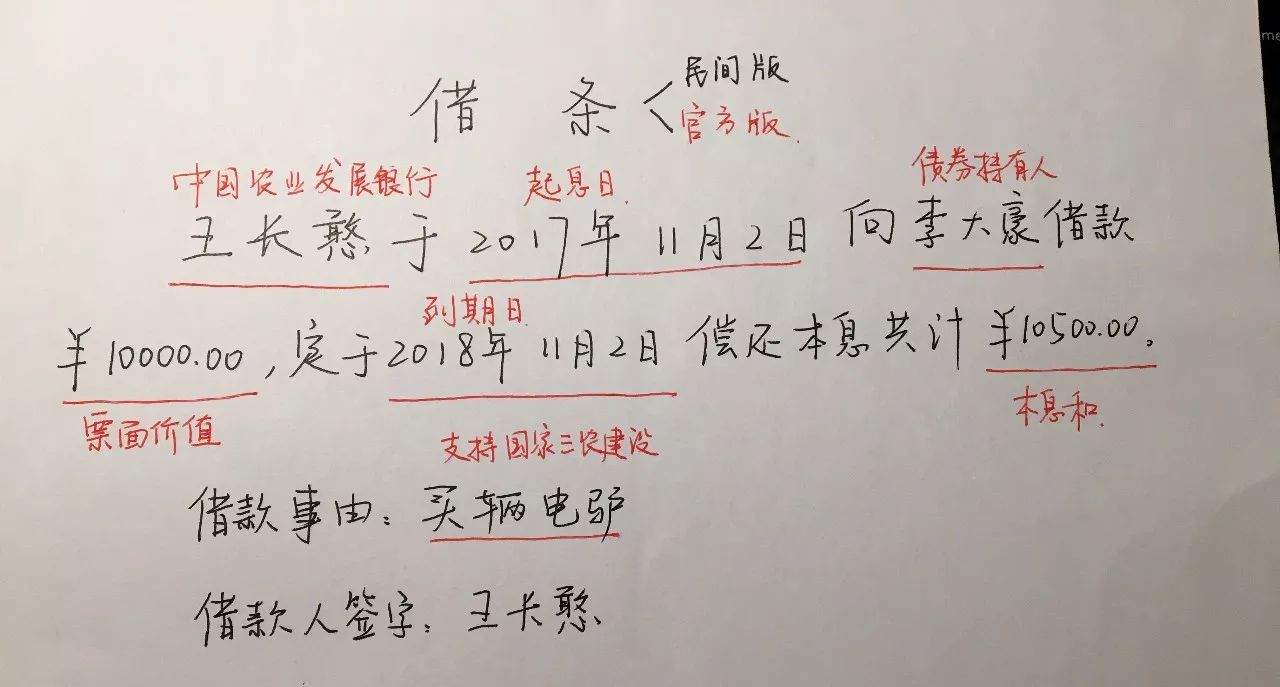 借 条 < 民间版
官方版
中国农业发展银行 起息日 债券持有人
王长憨于2017年11月2日向李大豪借款
到期日
￥10000.00,定于2018年11月2日偿还本息共计￥10500.00。
票面价值 支持国家三农建设 本息和
借款事由:买辆电驴
借款人签字:王长憨
me